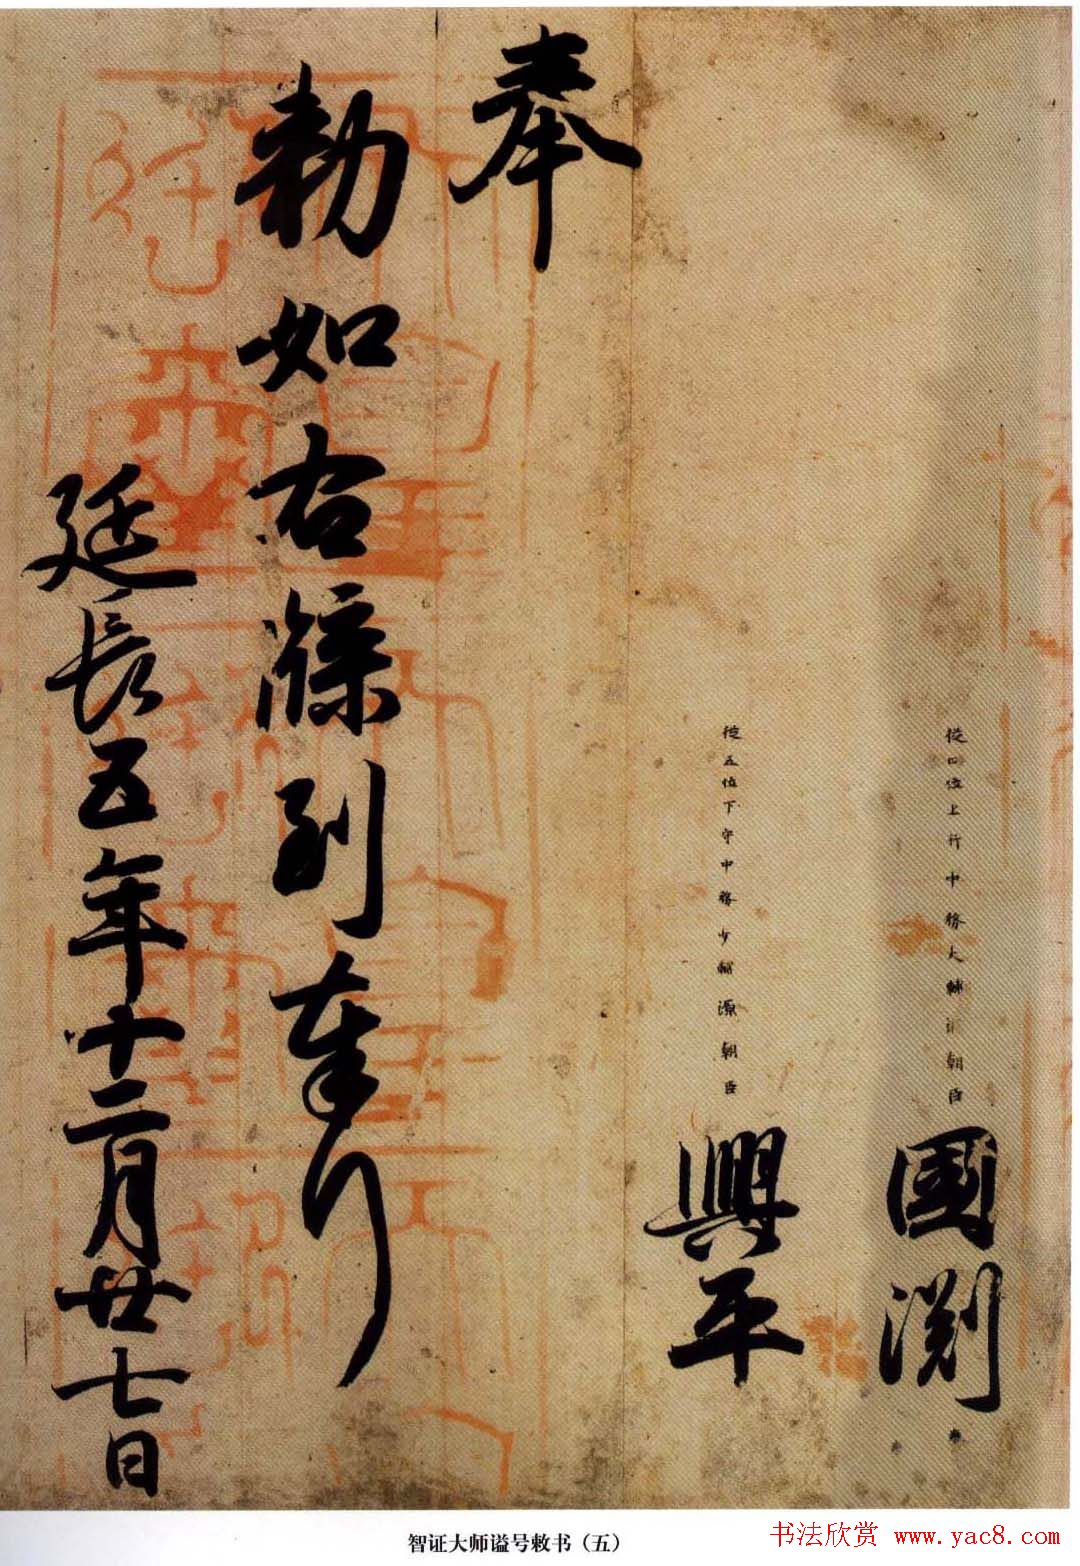 從四位上行中務大輔源朝臣國淵奉
從五位下守中務少輔源朝臣興平
奉
勅如右牒到奉行
延長五年十二月廿七日
智证大师谥号敕书（五）
书法欣赏 www.yac8.com